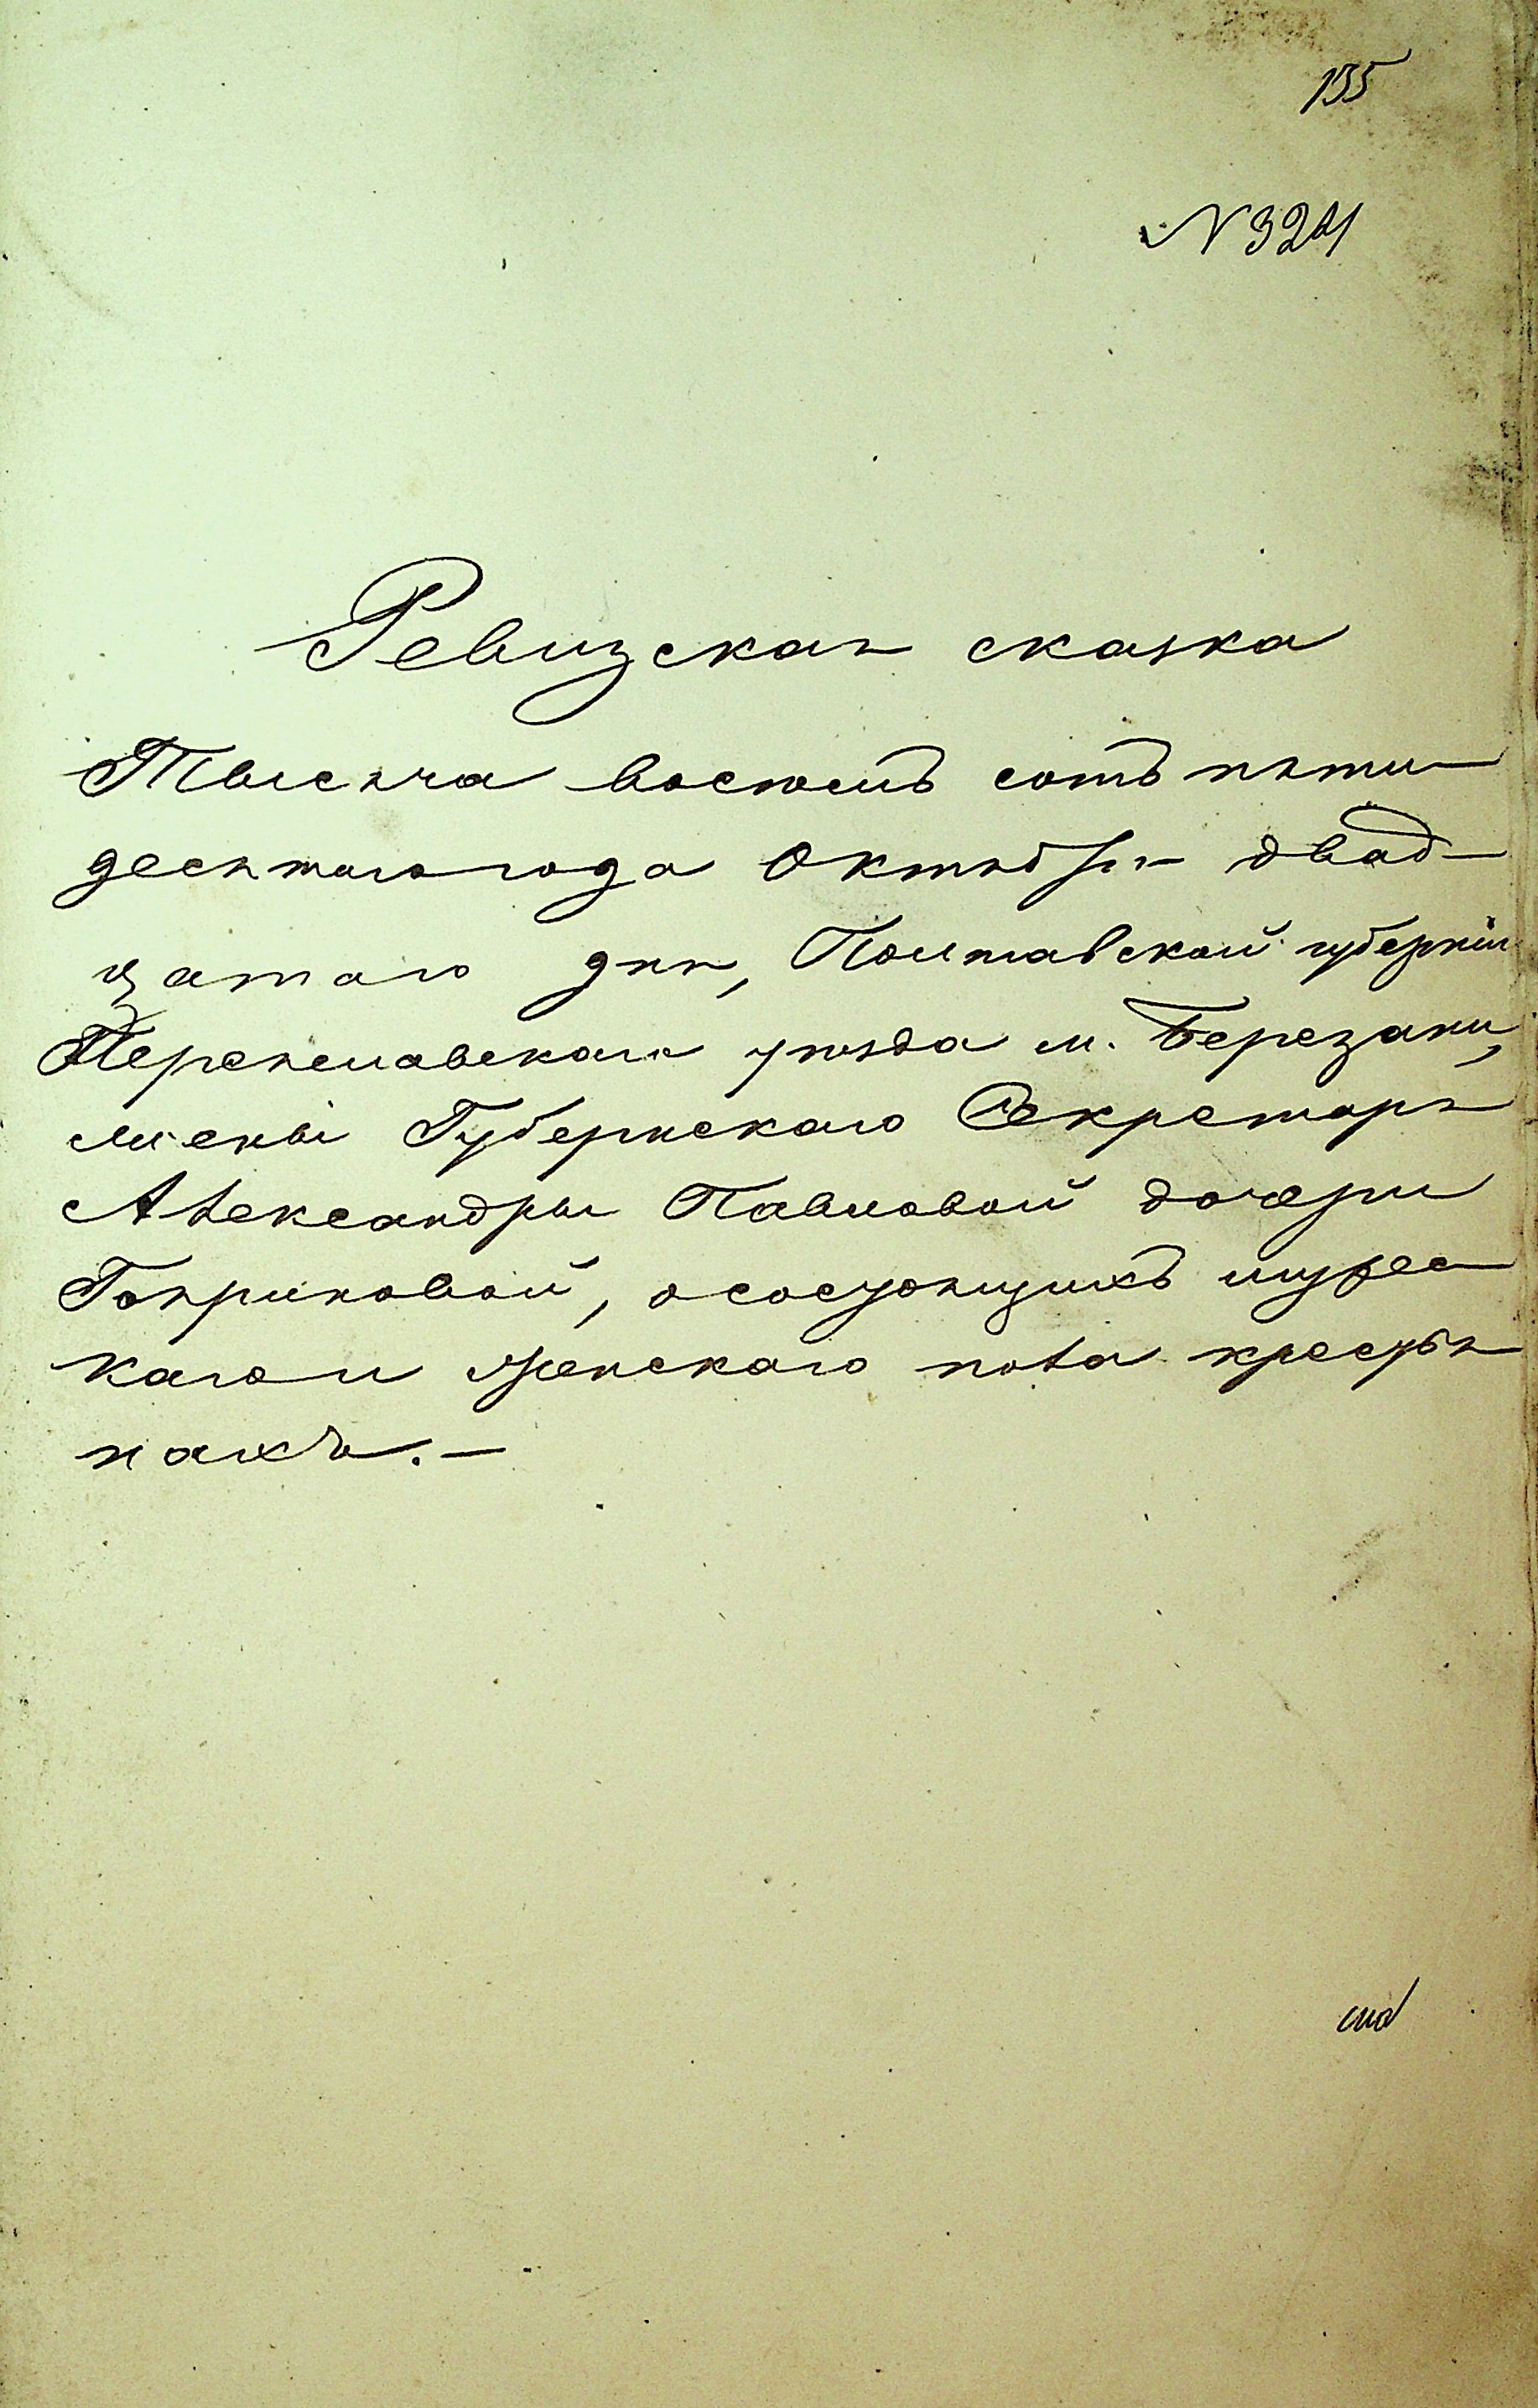 135
N 324
Ревизская сказка
Тысяча восемъ сотъ пяти
десятого года Октября двад-
цатого дня, Полтавской губернiи
Переяславскаго уѣзда м. Березани,
жены Губернскаго Секретаря
Александры Павловой дочери
о состоящихъ мужес
каго и женскаго пола крестья
нахъ.—